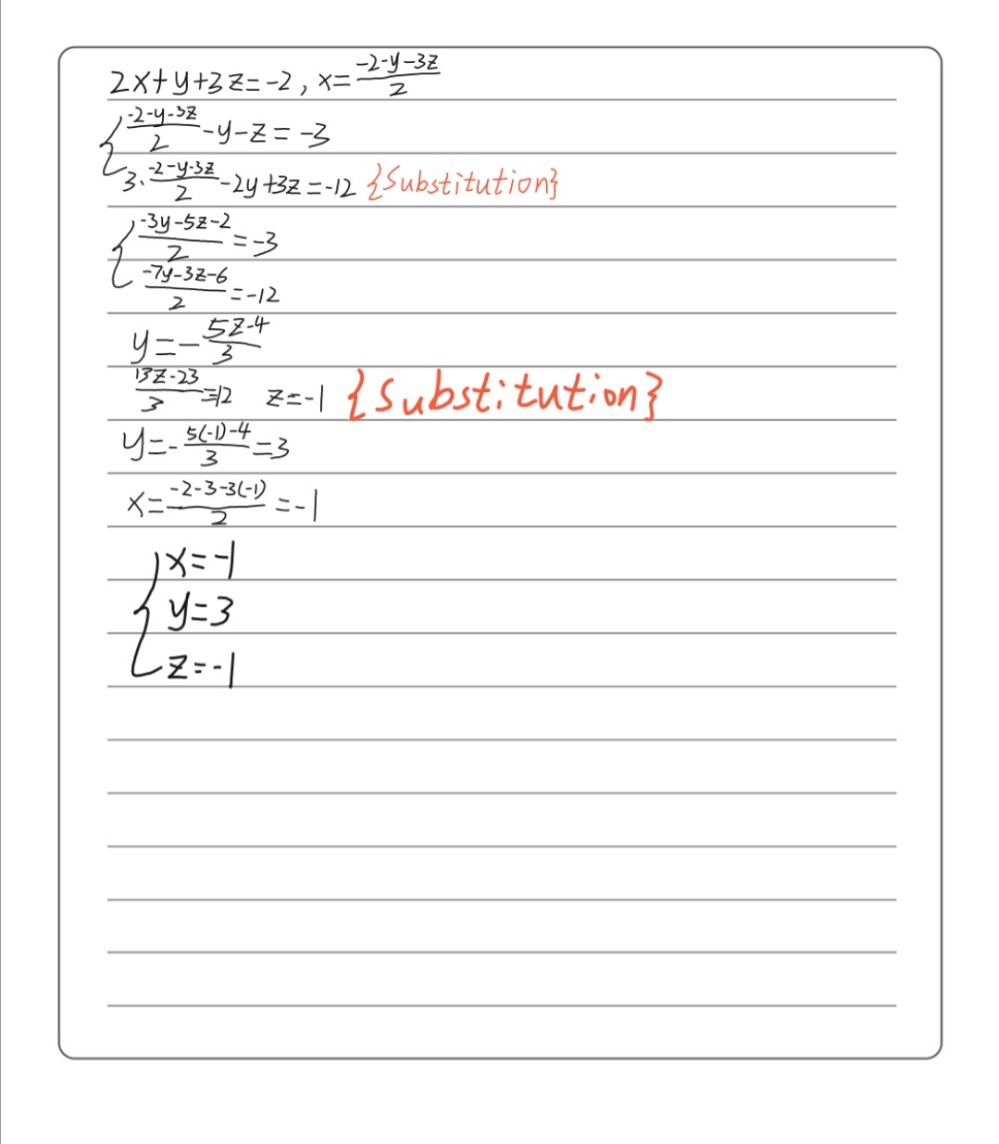 2x+y+3z=-2, x=\frac{-2-y-3z}{2}
{\frac{-2-y-3z}{2}-y-z=-3
3·\frac{-2-y-3z}{2}-2y+3z=-12 {Substitution}
{\frac{-3y-5z-2}{2}=-3
\frac{-7y-3z-6}{2}=-12
y=-\frac{5z-4}{3}
\frac{13z-23}{3}=-12 z=-1 {Substitution}
y=-\frac{5(-1)-4}{3}=3
x=\frac{-2-3-3(-1)}{2}=-1
{x=-1
y=3
z=-1